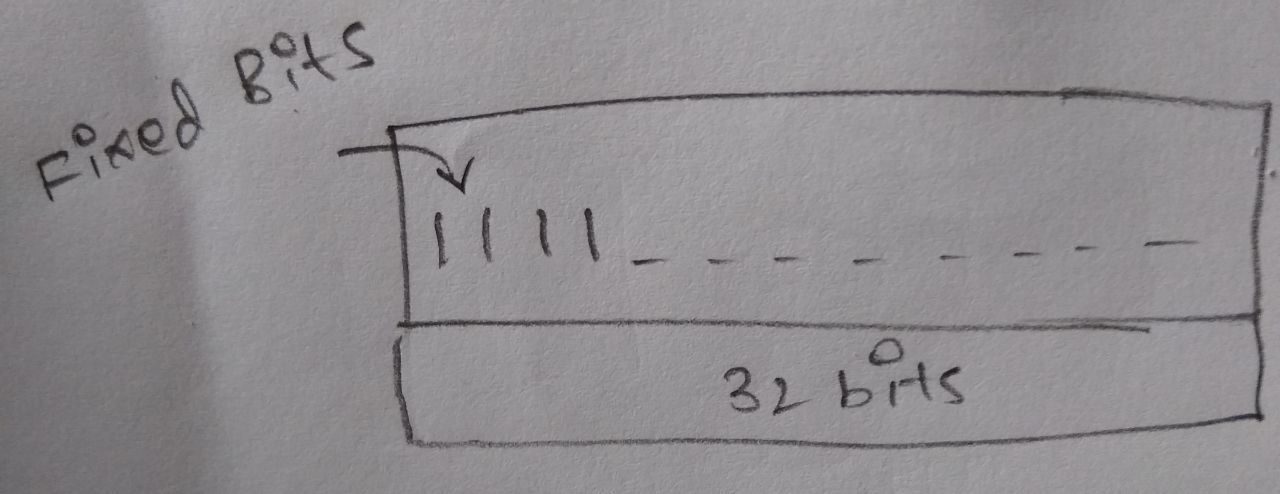 Fixed Bits
1111 - - - - - - - -
32 bits